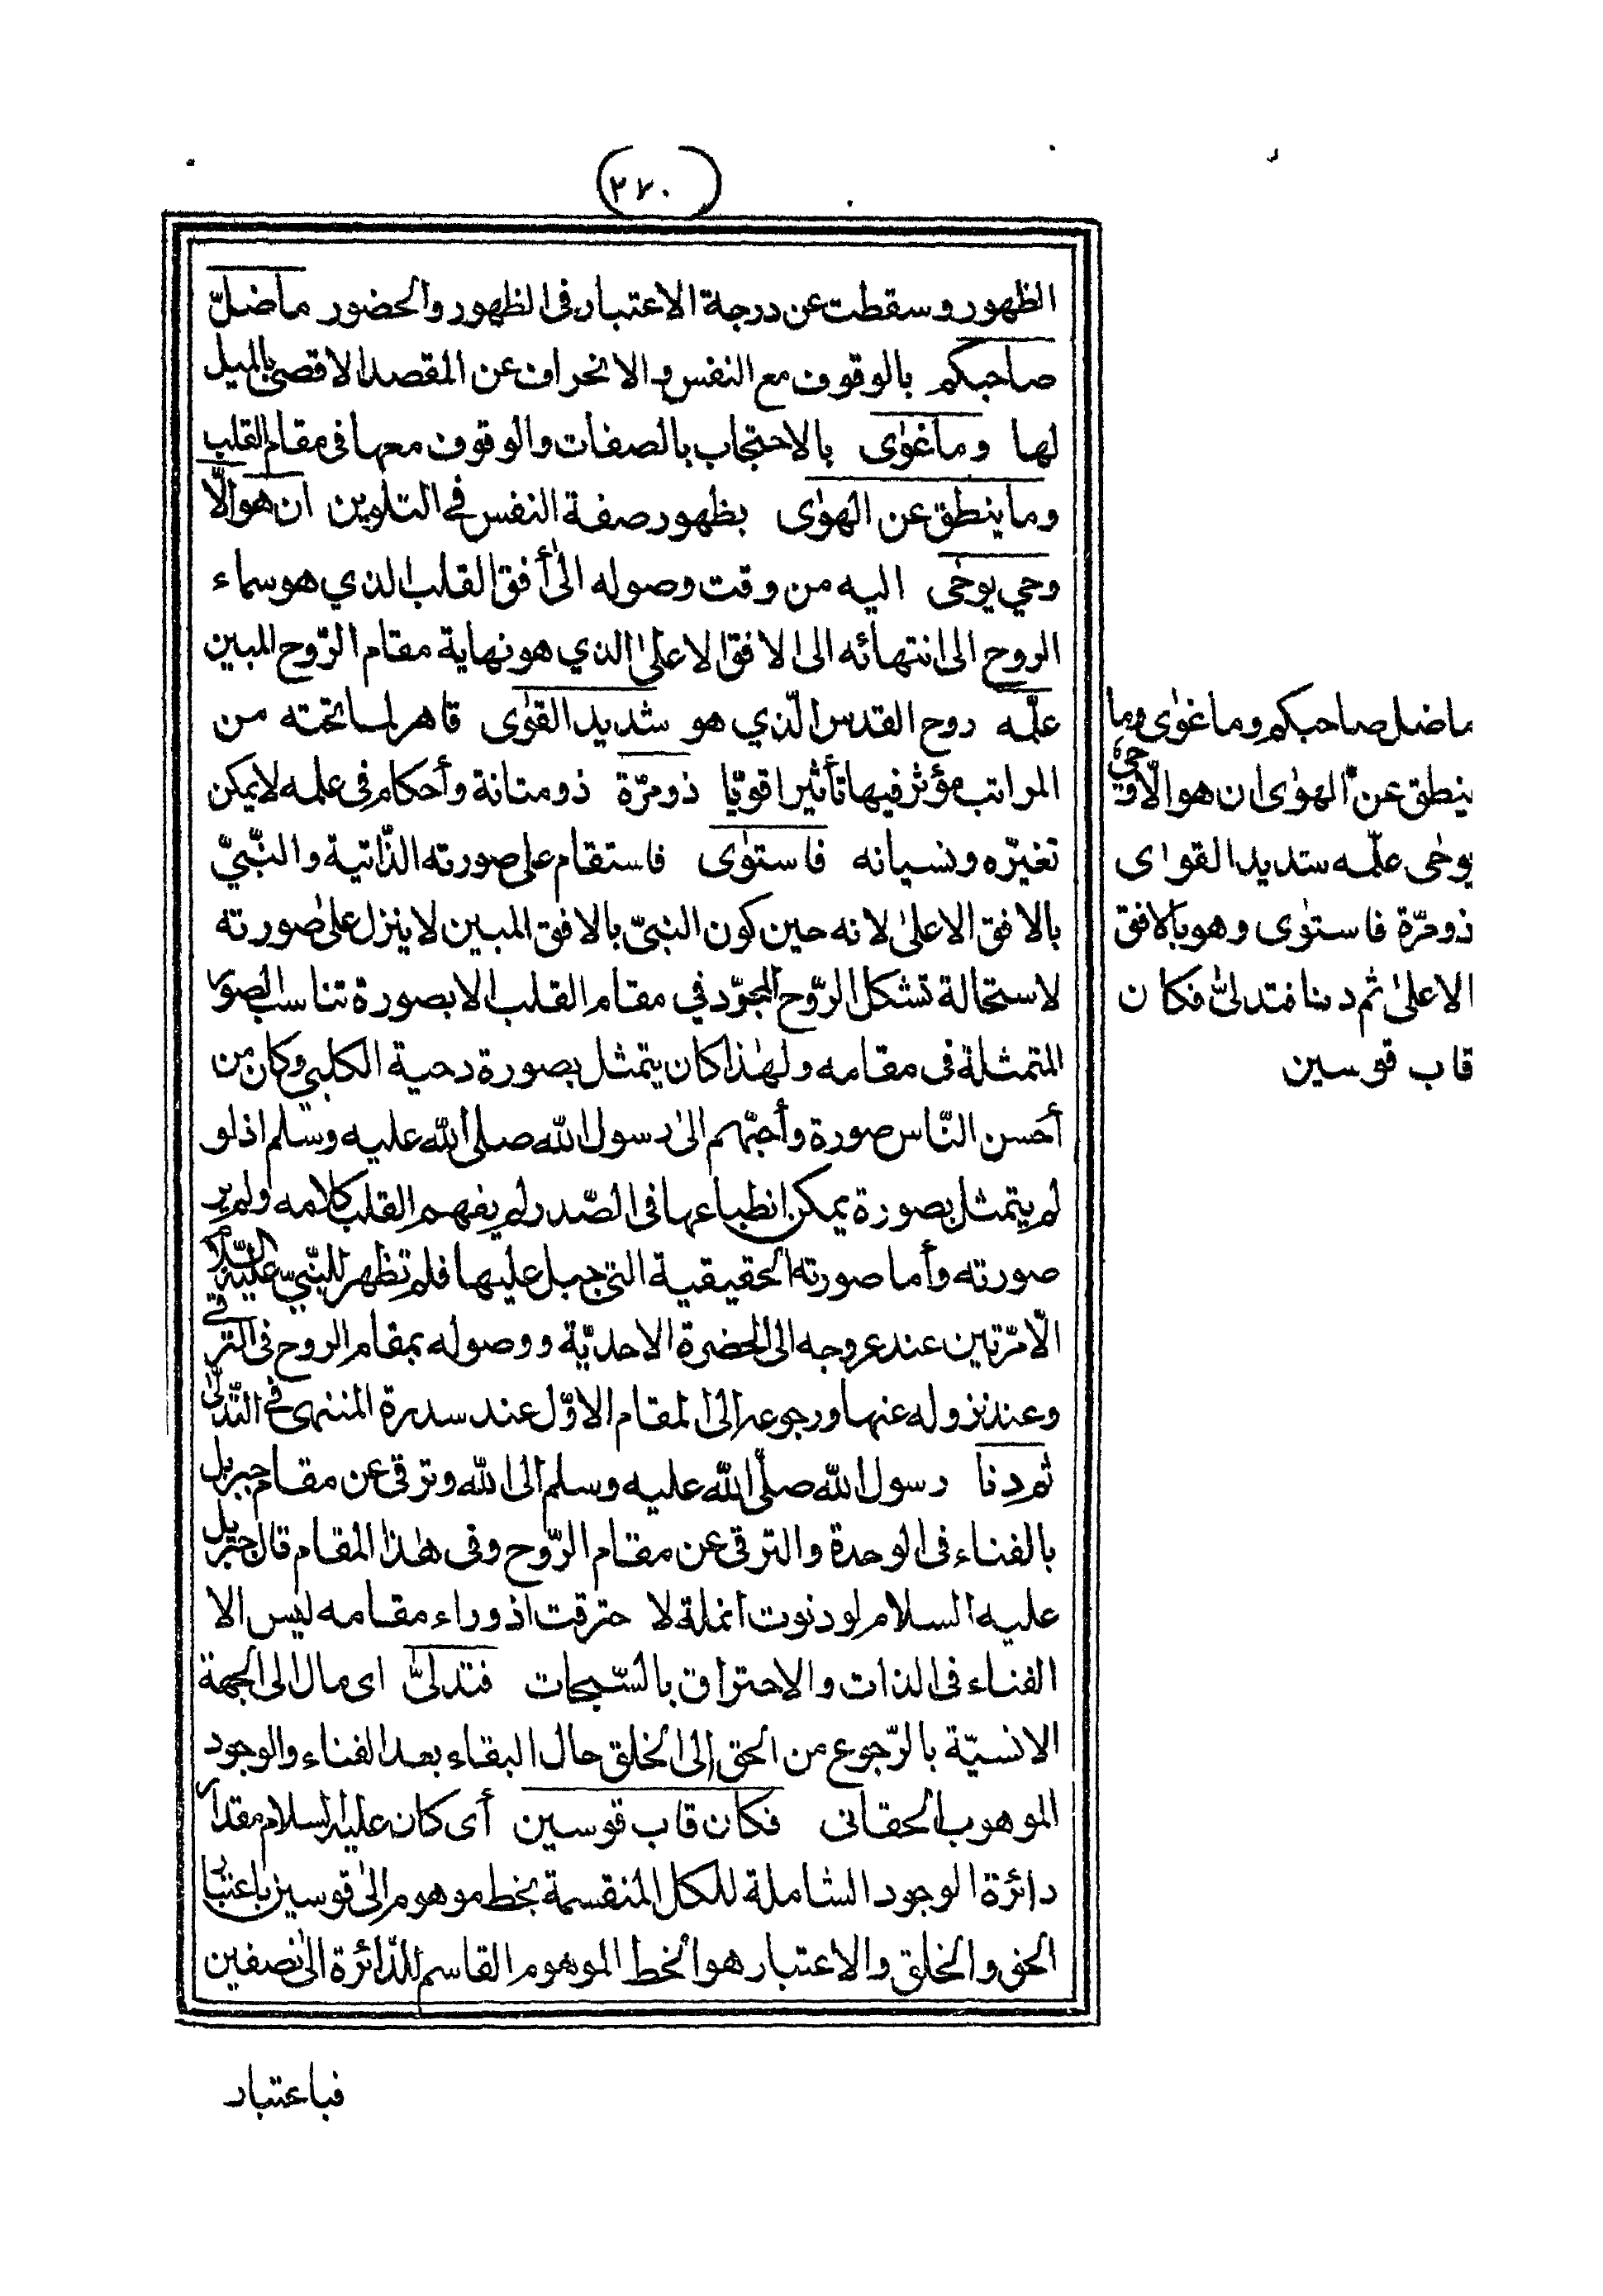 (٢٧٠)
الظهور وسقطت عن درجة الاعتبار فى الظهور والحضور ماضلّ
صاحبكم بالوقوف مع النفس والانحراف عن المقصد الاقصى بالميل
لها وماغوٰى بالاحتجاب بالصفات والوقوف معها فى مقام القلب
وما ينطق عن الهوٰى بظهور صفة النفس فى التلوين ان هو الّا
وحي يوحٰى اليه من وقت وصوله الىٰ أفق القلب الذي هو سماء
الروح الى انتهائه الى الافق الاعلىٰ الذي هو نهاية مقام الرّوح المبين
علّمه روح القدس الّذي هو شديد القوٰى قاهر لما تحته من
المراتب مؤثر فيها تأثيرا قويّا ذومرّة ذو متانة وأحكام فى علمه لايمكن
تغيّره ونسيانه فاستوٰى فاستقام على صورته الذّاتية والنّبىّ
بالافق الاعلىٰ لانه حين كون النبىّ بالافق المبين لاينزل علىٰ صورته
لاستحالة تشكل الرّوح المجرّد في مقام القلب الا بصورة تناسب الصور
المتمثلة فى مقامه ولهٰذا كان يتمثل بصورة دحية الكلبي وكان من
أحسن النّاس صورة وأحبّهم الىٰ رسول الله صلى الله عليه وسلم اذ لو
لم يتمثل بصورة يمكن انطباعها فى الصّدر لم يفهم القلب كلامه ولم ير
صورته وأما صورته الحقيقية التى جبل عليها فلم تظهر للنّبي عليه السّلام
الّا مرّتين عند عروجه الى الحضرة الاحديّة ووصوله بمقام الروح فى الترقى
وعند نزوله عنها ورجوعه الىٰ المقام الاوّل عند سدرة المنتهى فى التّدلّىٰ
ثم دنا رسول الله صلّى الله عليه وسلم الى الله وترقى عن مقام جبريل
بالفناء فى الوحدة والترقى عن مقام الرّوح وفى هٰذا المقام قال جبريل
عليه السلام لو دنوت انملة لا حترقت اذ وراء مقامه ليس الا
الفناء فى الذات والاحتراق بالسّبحات فتدلىّٰ اى مال الى الجهة
الانسيّة بالرّجوع من الحق إلى الخلق حال البقاء بعد الفناء والوجود
الموهوب الحقانى فكان قاب قوسين أى كان عليه السلام مقدار
دائرة الوجود الشاملة للكل المنقسمة بخط موهوم الىٰ قوسين باعتبار
الحق والخلق والاعتبار هو الخط الموهوم القاسم للدّائرة الىٰ نصفين
فباعتبار
ماضل صاحبكم وماغوٰى وما
ينطق عن الهوٰى ان هو الّا وحىٌ
يوحٰى علّمه ستديد القواى
ذومرّة فاستوٰى وهو بالافق
الاعلىٰ ثم دنا فتدلىّٰ فكان
قاب قوسين